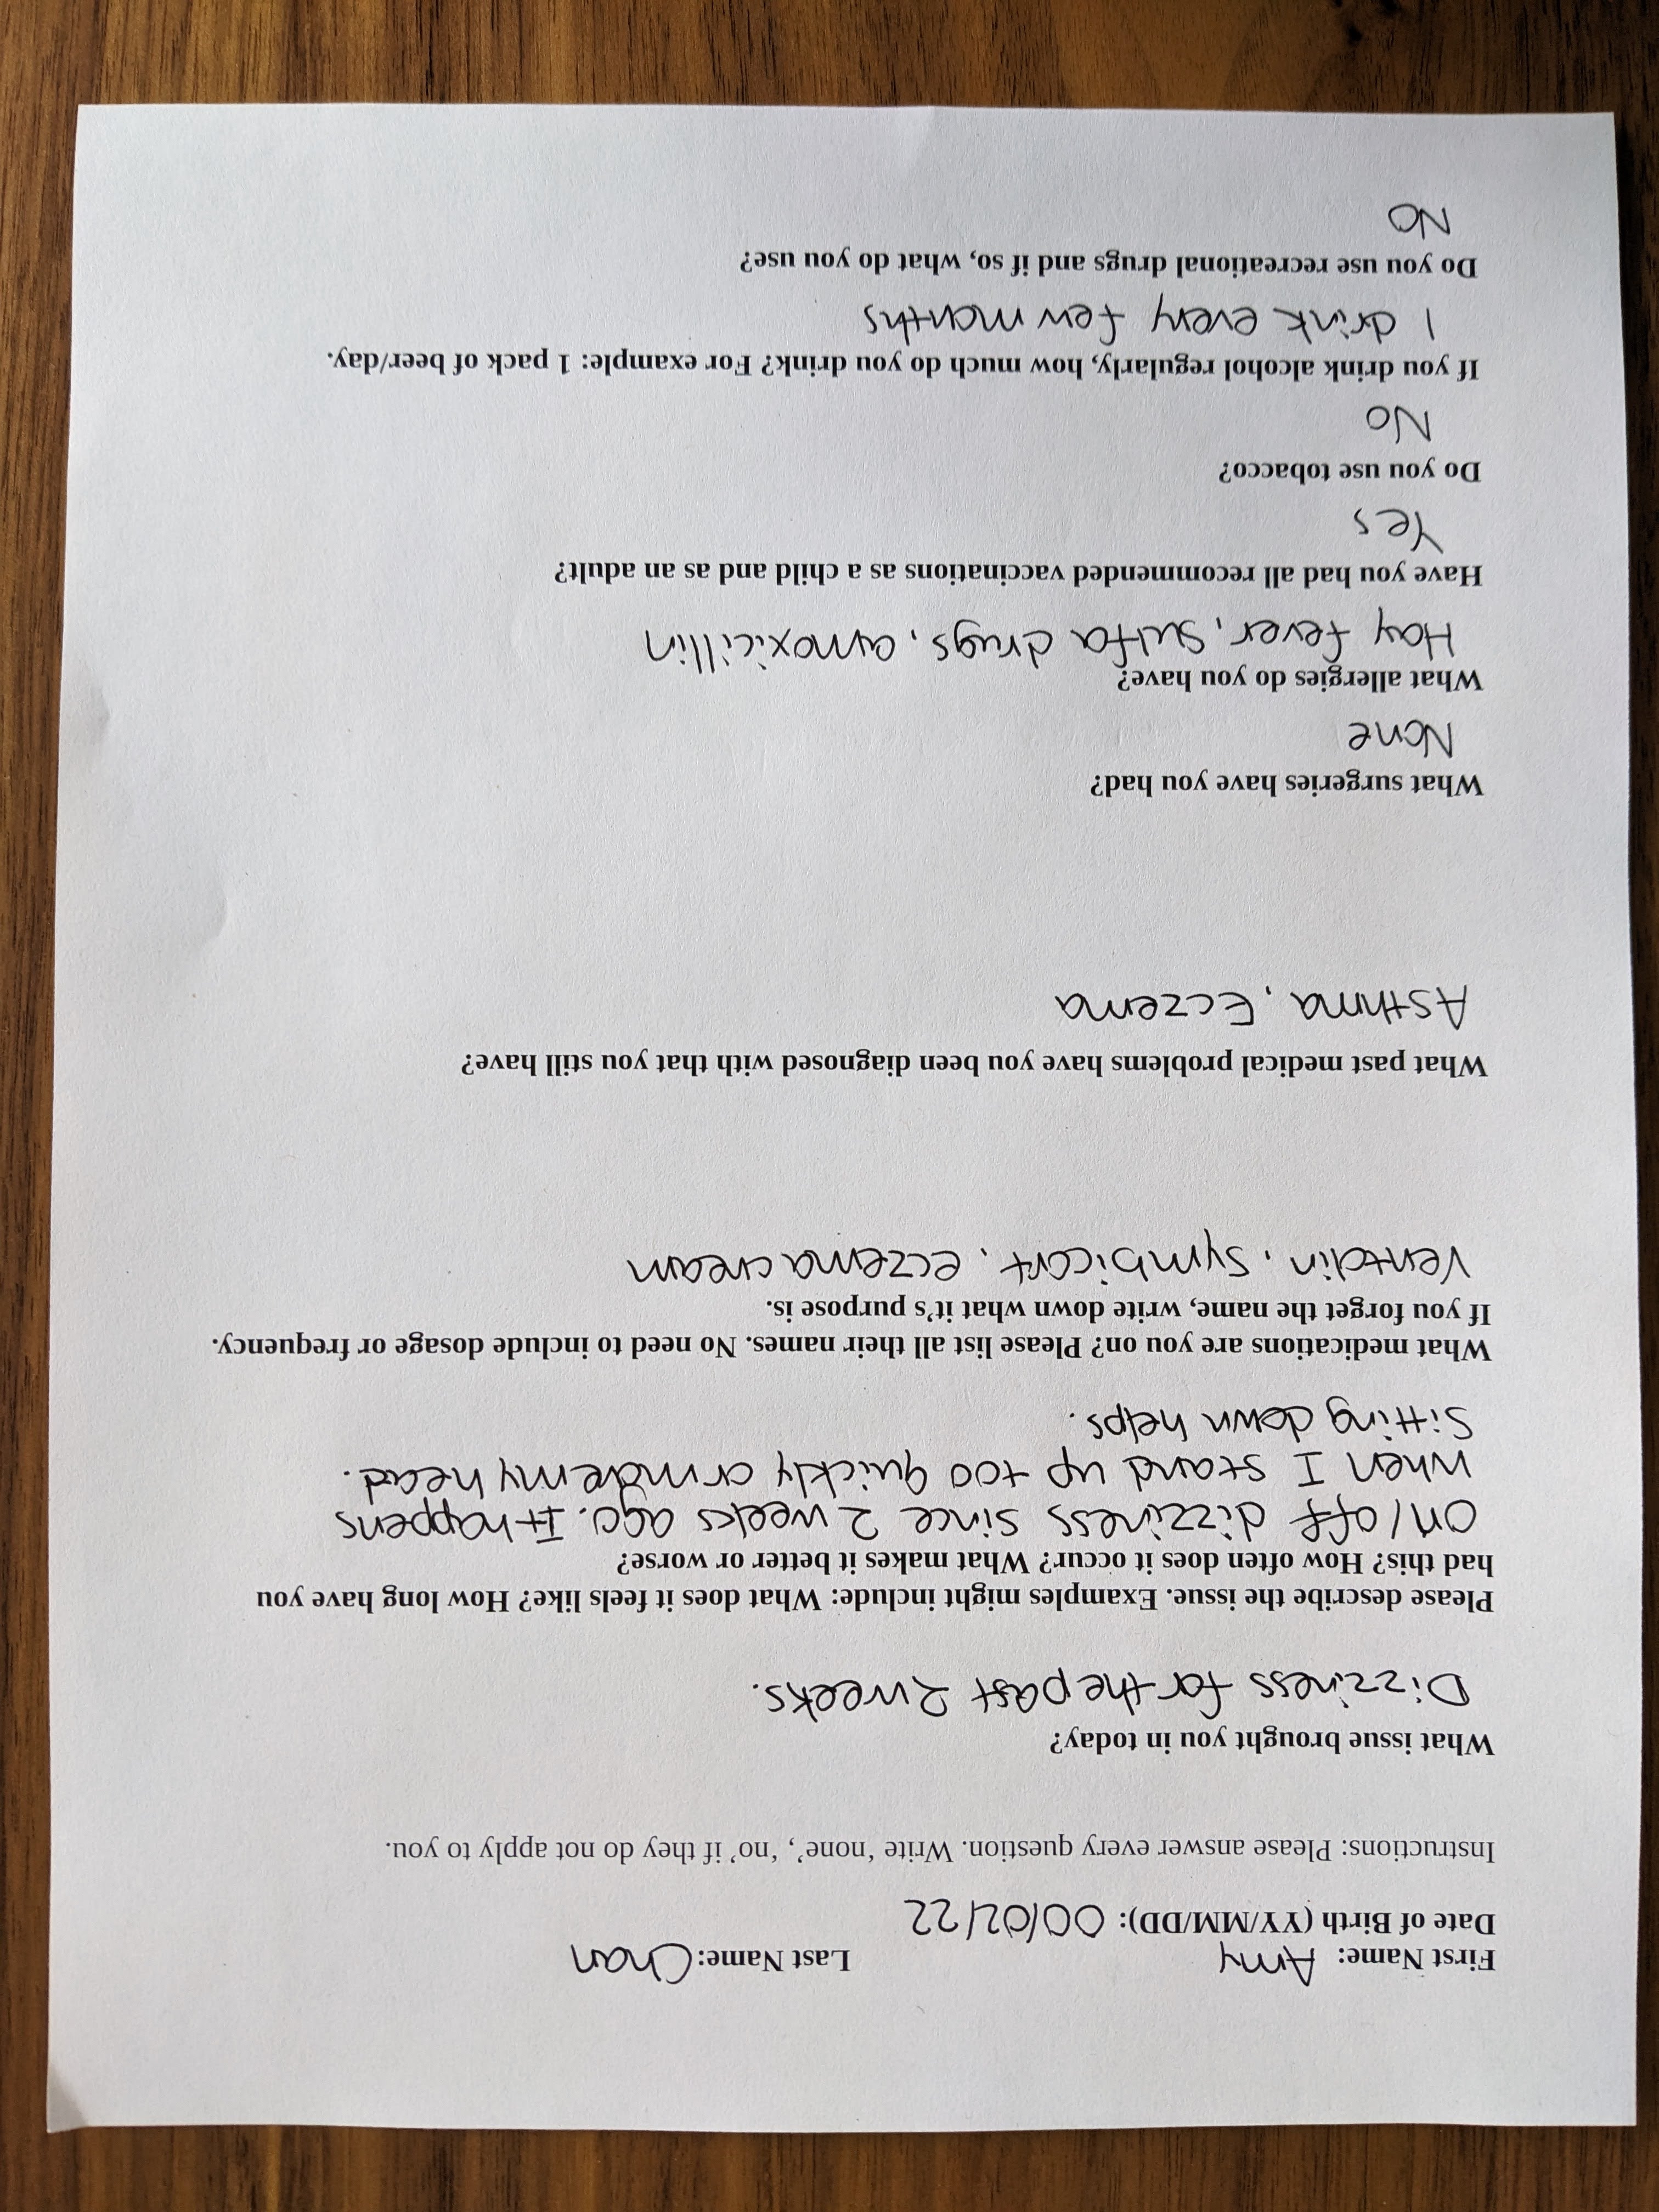 First Name: Amy Last Name: Chan
Date of Birth (YY/MM/DD): 00/02/22
Instructions: Please answer every question. Write ‘none’, ‘no’ if they do not apply to you.
What issue brought you in today?
Dizziness for the past 2 weeks.
Please describe the issue. Examples might include: What does it feels like? How long have you
had this? How often does it occur? What makes it better or worse?
On/off dizziness since 2 weeks ago. It happens
when I stand up too quickly or move my head.
Sitting down helps.
What medications are you on? Please list all their names. No need to include dosage or frequency.
If you forget the name, write down what it’s purpose is.
Ventolin, Symbicort, eczema cream
What past medical problems have you been diagnosed with that you still have?
Asthma, Eczema
What surgeries have you had?
None
What allergies do you have?
Hay fever, sulfa drugs, amoxicillin
Have you had all recommended vaccinations as a child and as an adult?
Yes
Do you use tobacco?
No
If you drink alcohol regularly, how much do you drink? For example: 1 pack of beer/day.
I drink every few months
Do you use recreational drugs and if so, what do you use?
No